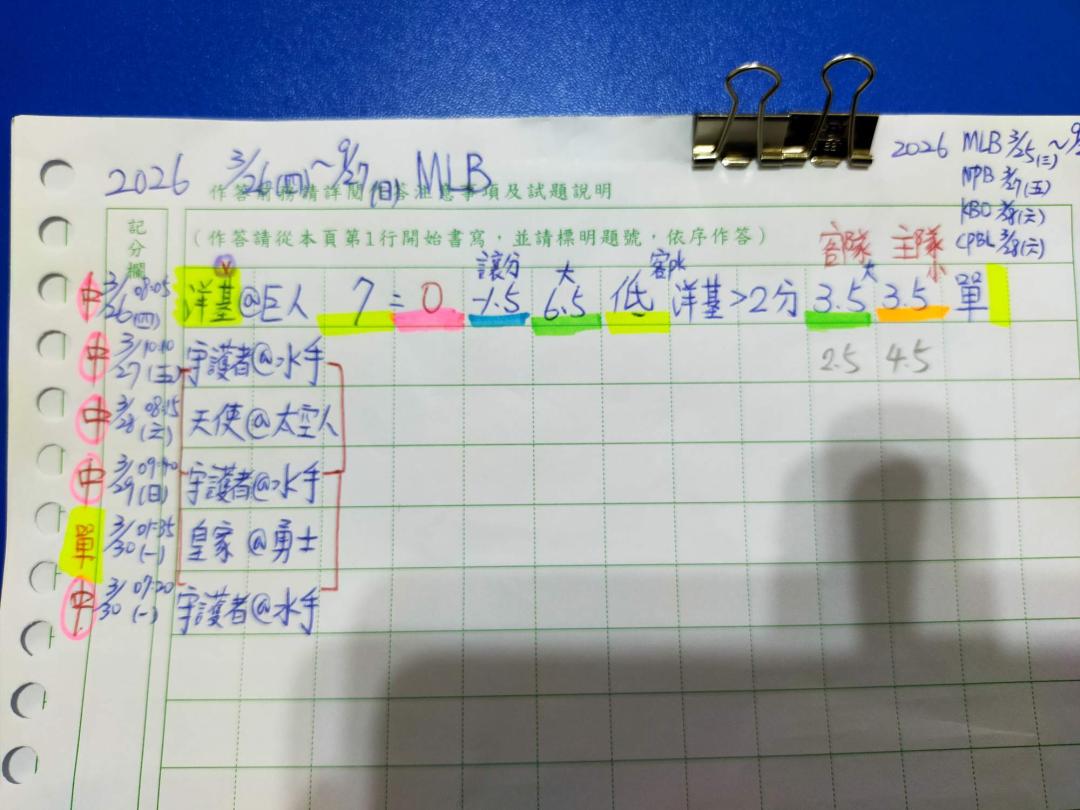 2026 3/26(四)~9/27(日) MLB
2026 MLB 3/25(三)~9/
NPB 3/27(五)
KBO 3/28(六)
CPBL 3/28(六)
作答前務請詳閱作答注意事項及試題說明
記分欄
(作答請從本頁第1行開始書寫，並請標明題號，依序作答)
客隊 主隊
讓分 大 客pk 大 小
中 3/26(四) 08:05 洋基@巨人 7=0 -1.5 6.5 低 洋基>2分 3.5 3.5 單
中 3/27(五) 10:10 守護者@水手 2.5 4.5
中 3/28(六) 08:15 天使@太空人
中 3/29(日) 09:40 守護者@水手
單 3/30(一) 01:35 皇家@勇士
中 3/30(一) 07:20 守護者@水手